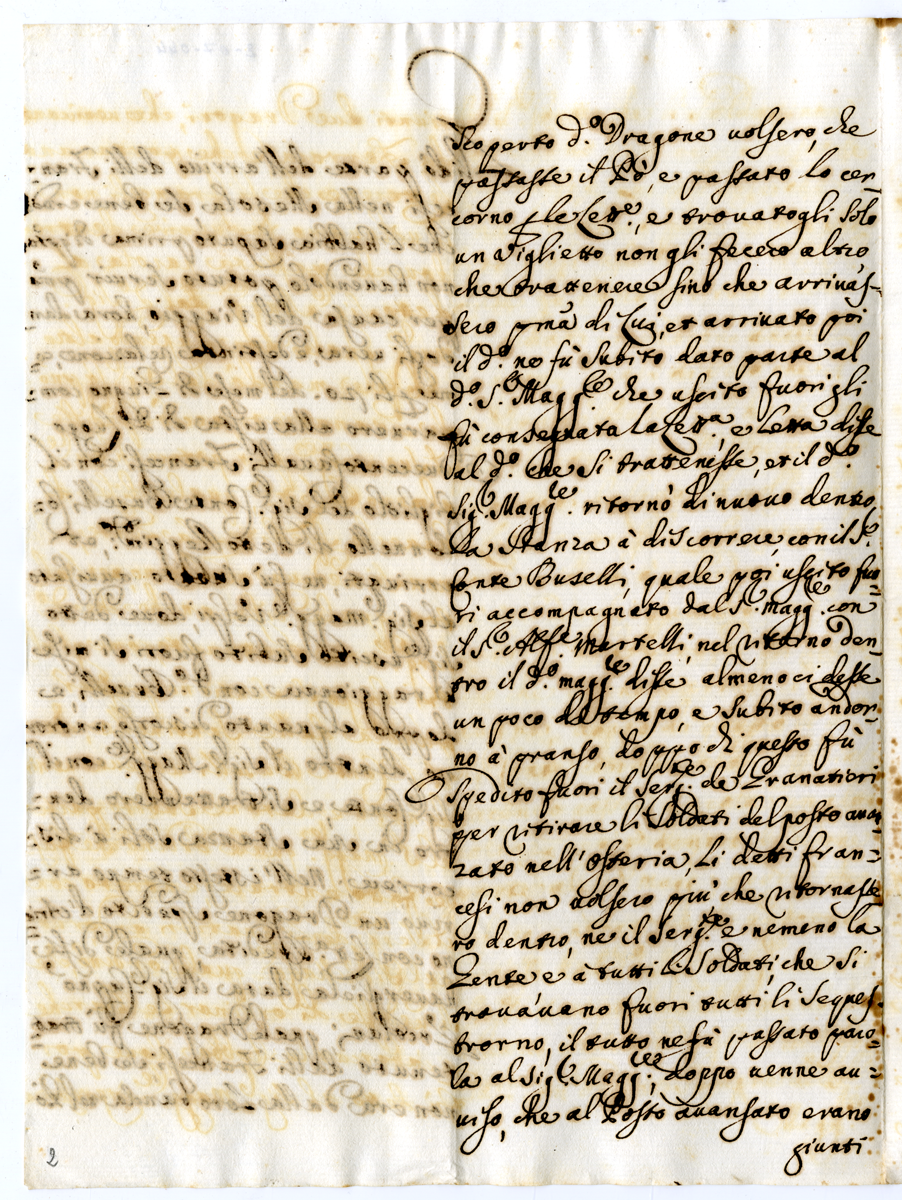 Scoperto d.º Dragone uolsero, che
passasse il Pò, e passato lo cer-
corno p le Lett.e, e trouatogli solo
un Viglietto non gli fecero altro
che trattenere sino che arriuas-
sero pmà di Lui, et arriuato poi
il d.º ne fù subito dato parte al
d.º S.r Magg.re che uscito fuori gli
fù consegnata la Lett.a, e Letta disse
al d.º che si trattenisse, et il d.º
Sig.r Magg.re ritornò di nuouo dentro
la stanza à discorrere con il S.r
Conte Buselli, quale poi uscito fuo=
ri accompagnato dal S.r magg.re con
il S.r Alf.e Martelli, nel ritorno den=
tro il d.º magg.re disse almeno ci desse
un poco di tempo, e subito andor=
no à pranso, doppo di questo fù
spedito fuori il Serg.te de Granatieri
per ritirare li Soldati del posto auan
zato nell'osteria, Li detti fran=
cesi non uolsero più che ritornasse
ro dentro, ne il Serg.te e nemeno la
Zente e à tutti li Soldati, che si
trouauano fuori tutti li seques
trorno, il tutto ne fù passato paro=
la al Sig.r Magg.re, doppo uenne au=
uiso, che al Posto auansato erano
giunti
2